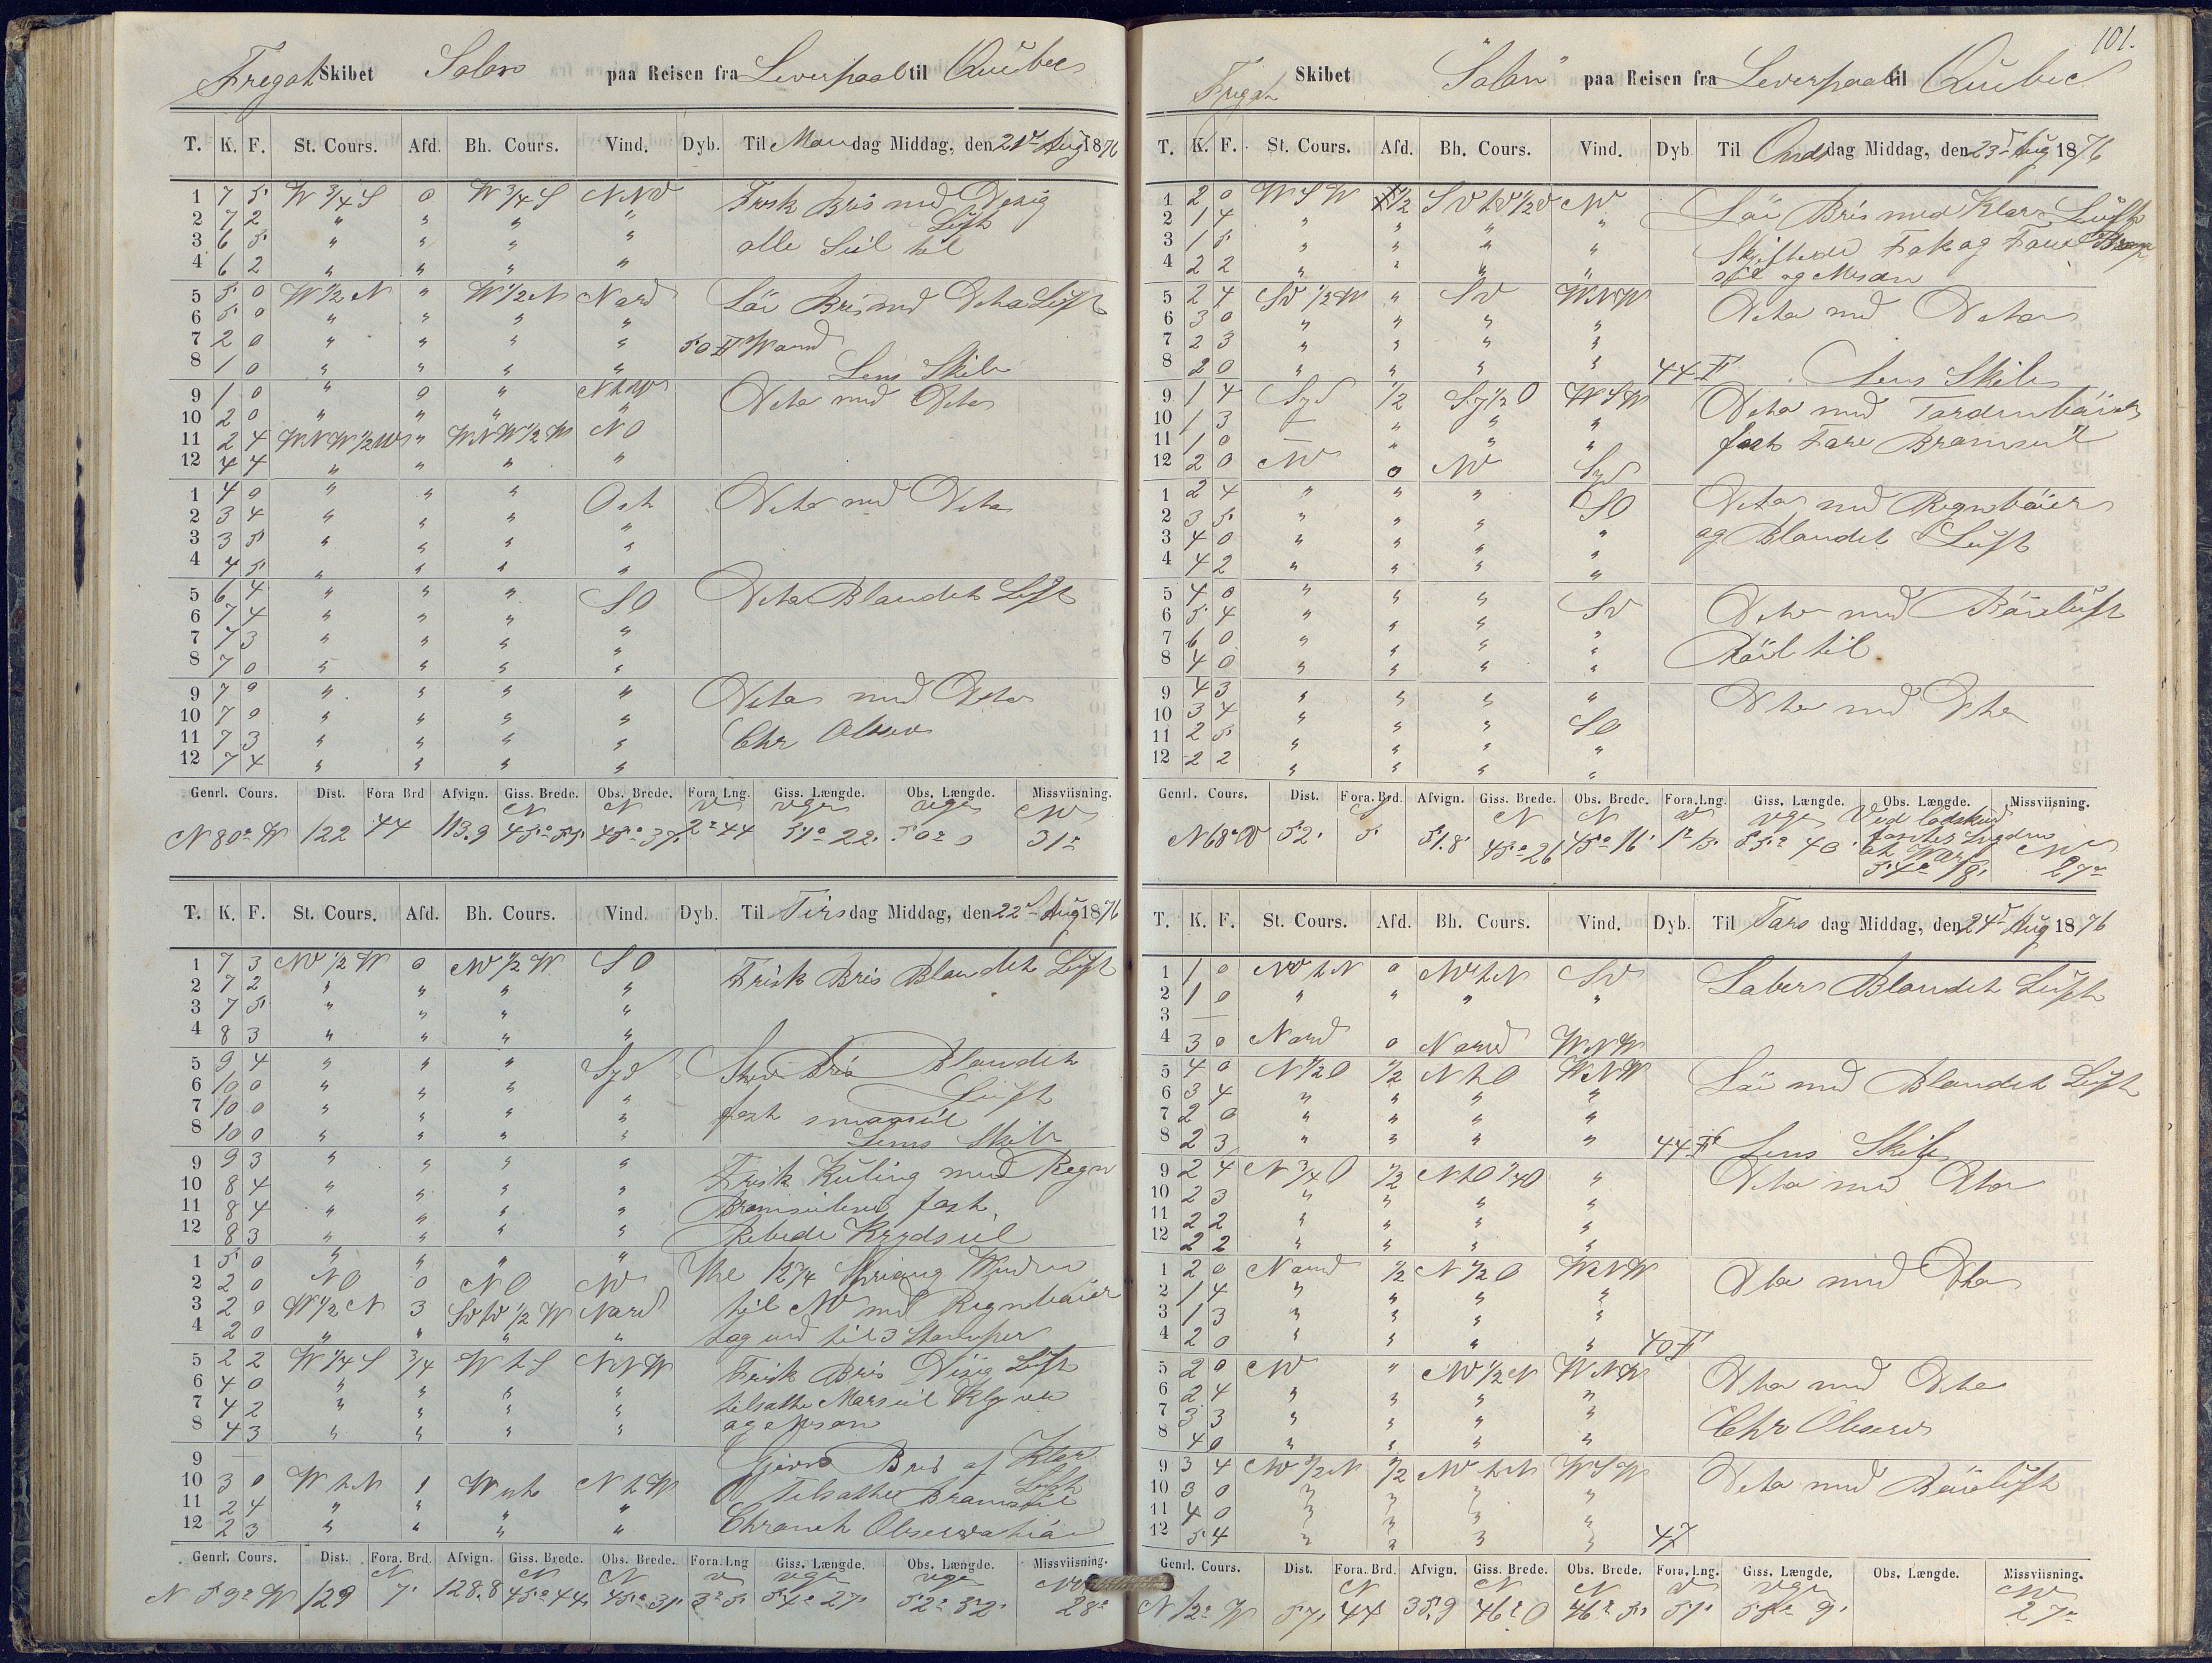 Fregat Skibet Solon paa Reisen fra Leverpool til Quebec
T. K. F. St. Cours. Afd. Bh. Cours. Vind. Dyb. Til Mandag Middag, den 21de Aug 1876
1 7 5 W 3/4 S 0 W 3/4 S NNV Frisk Bris med Disig
2 7 2 " " " " Luft
3 6 5 " " " " alle Seil til
4 6 2 " " " "
5 5 0 W 1/2 N " W 1/2 N Nord Löi Bris med Dito Luft
6 5 0 " " " "
7 2 0 " " " " 50 F Wand
8 1 0 " " " " Lens Skib
9 1 0 " 0 " NtW Dito med Dito
10 2 0 " " " "
11 2 4 WNW 1/2 W " WNW 1/2 W NO
12 4 4 " " " "
1 4 0 " " " Ost Dito med Dito
2 3 4 " " " "
3 3 5 " " " "
4 4 5 " " " "
5 6 4 " " " SO Dito Blandet Luft
6 7 4 " " " "
7 7 3 " " " "
8 7 0 " " " "
9 7 0 " " " " Dito med Dito
10 7 0 " " " "
11 7 3 " " " " Chr Obser
12 7 4 " " " "
Genrl. Cours. Dist. Fora Brd Afvign. Giss. Brede. Obs. Brede. Fora Lng. Giss. Længde. Obs. Længde. Missviisning.
N N V vgr vgr NW
N 80° W 122 44 113.9 45° 55' 45° 37' 2° 44 51° 22' 50° 0 31°
T. K. F. St. Cours. Afd. Bh. Cours. Vind. Dyb. Til Tirsdag Middag, den 22de Aug 1876
1 7 3 NW 1/2 W 0 NW 1/2 W SO Frisk Bris Blandet Luft
2 7 2 " " " "
3 7 5 " " " "
4 8 3 " " " "
5 9 4 " " " Syd Stiv Bris Blandet
6 10 0 " " " " Luft
7 10 0 " " " " fast smaaseil
8 10 0 " " " " Lens Skib
9 9 3 " " " " Frisk Kuling med Regn
10 8 4 " " " " Bramseilene fast,
11 8 4 " " " "
12 8 3 " " " " Rebede Krydseil
1 5 0 " " " " Kl 12 1/4 sprang Winden
2 2 0 NO 0 NO NW til NW med Regnböier
3 2 0 W 1/2 N 3 SVtV 1/2 W Nord
4 2 0 " " " " tog ind til 3 Stumper
5 2 2 W 1/4 S 3/4 W t S NNW Frisk Bris Disig Luft
6 4 0 " " " " tilsatte Marseil Klyver
7 4 2 " " " "
8 4 3 " " " " og Mesan
9 — Gjovn Bris af Klar
10 3 0 W t N 1 West N t W Luft
11 2 4 " " " " Tilsatte Bramseil
12 2 3 " " " " Chronet Observation
Genrl. Cours. Dist. Fora. Brd. Afvign. Giss. Brede. Obs. Brede. Fora. Lng Giss. Længde. Obs. Længde. Missviisning.
N N N V vgr vgr NW
N 59° W 129 7' 128.8 45° 44' 45° 31' 3° 5' 54° 27' 52° 52' 28°
101.
Fregat Skibet "Solon" paa Reisen fra Leverpool til Quebec
T. K. F. St. Cours. Afd. Bh. Cours. Vind. Dyb Til Onsdag Middag, den 23de Aug 1876
1 2 0 WSW 1/2 SVtV 1/2 V NW Löi Bris med Klar Luft
2 1 4 " " " "
3 1 5 " " " " Skiftede Fok og Fore Bram
4 2 2 " " " " seil og Mesan
5 2 4 SV 1/2 W " SV WNW Dito med Dito
6 3 0 " " " "
7 2 3 " " " "
8 2 0 " " " " 44 F Lens Skib
9 1 4 Syd 1/2 Sy 1/2 O WSW Dito med Tordenböier
10 1 3 — " " "
11 1 0 — " " " fast Fore Bramseil
12 2 0 NW 0 NW Syd
1 2 4 " " " SO Dito med Regnböier
2 3 5 " " " "
3 4 0 " " " " og Blandet Luft
4 4 2 " " " "
5 4 0 " " " SV Dito med Böieluft
6 5 4 " " " "
7 6 0 " " " " Röil til
8 4 0 " " " "
9 4 3 " " " " Dito med Dito
10 3 4 " " " SO
11 2 5 " " " "
12 2 2 " " " "
Genrl. Cours. Dist. Fora. Brd. Afvign. Giss. Brede. Obs. Brede. Fora. Lng. Giss. Længde. Obs. Længde. Missviisning.
S N N V vgr Ved lodskud NW
N 68° W 52' 5' 51.8' 45° 26 45° 16' 1° 15' 55° 40' 54° 18' 27°
T. K. F. St. Cours. Afd. Bh. Cours. Vind. Dyb. Til Torsdag Middag, den 24de Aug 1876
1 1 0 NW t N 0 NW t N SV Laber Blandet Luft
2 1 0 " " " "
3 —
4 3 0 Nord 0 Nord WNW
5 4 0 N 1/2 O 1/2 N t O WNW Löi med Blandet Luft
6 3 4 " " " "
7 2 0 " " " "
8 2 3 " " " " 44 F Lens Skib
9 2 4 N 3/4 O 1/2 NtO 1/4 O " Dito med Dito
10 2 3 " " " "
11 2 2 " " " "
12 2 2 " " " "
1 2 0 Nord 1/2 N 1/2 O WNW Dto med Dto
2 1 4 " " " "
3 1 3 " " " "
4 2 0 " " " " 40 F
5 2 0 NW " NW 1/2 N WNW Dto med Dto
6 2 4 " " " "
7 3 3 " " " " Chr Obser
8 4 0 " " " "
9 3 4 NW 1/2 N 1/2 NW t N WSW Dito med Böieluft
10 3 0 " " " "
11 4 0 " " " "
12 5 4 " " " " 47
Genrl. Cours. Dist. Fora. Brd. Afvign. Giss. Brede. Obs. Brede. Fora. Lng. Giss. Længde. Obs. Længde. Missviisning.
N N N V vgr NW
N 12° W 57' 44 35.9 46° 0 46° 5' 51' 55° 9' 27°